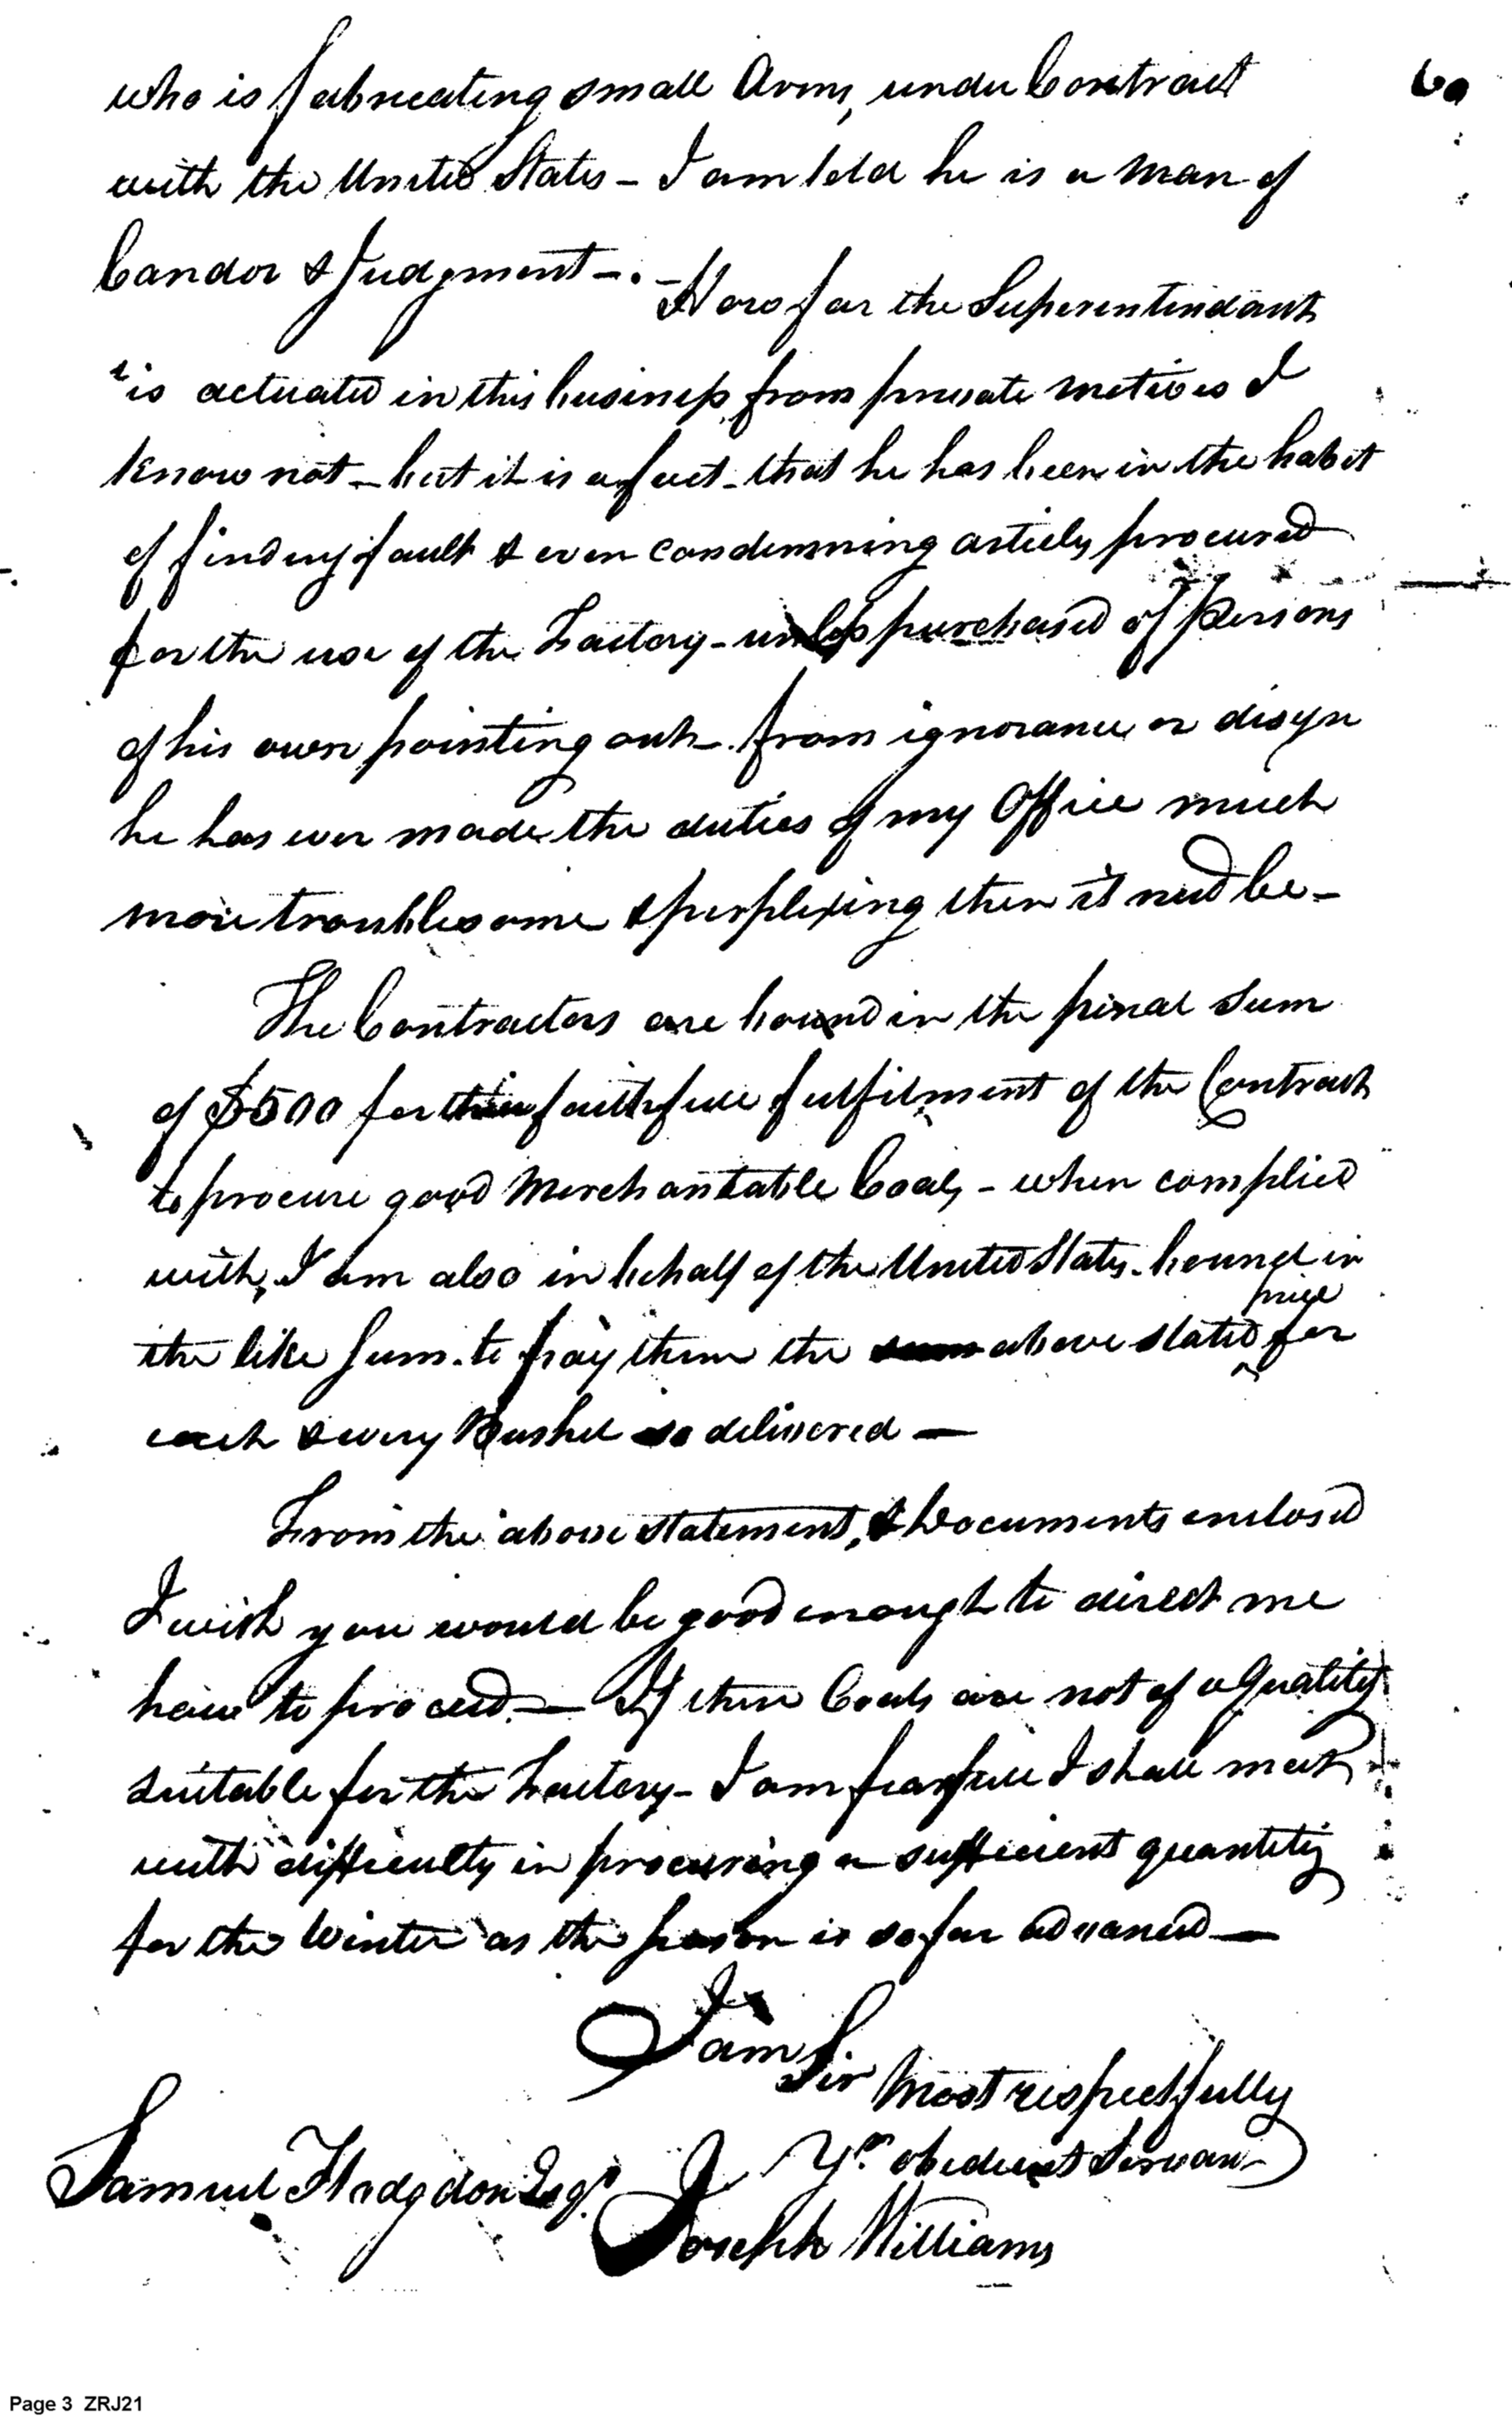 who is fabricating small Arms, under Contract
with the United States – I am told he is a man of
Candor & Judgment –. –
How far the Superintendant
is actuated in this business from private motives I
know not – but it is a fact – that he has been in the habit
of finding fault & even condemning articles procured
for the use of the Factory – unless purchased of persons
of his own pointing out – from ignorance or design
he has ever made the duties of my Office much
more troublesome & perplexing then it need be –
The Contractors are bound in the penal sum
of $500 for their faithfull fulfilment of the Contract
to procure good Merchantable Coals – when complied
with, I am also in behalf of the United States bound in
price
the like sum to pay them the sum above stated for
each & every Bushel so delivered –
From the above statement, & Documents enclosed
I wish you would be good enough to direct me
how to proceed – If these Coals are not of a Quality
suitable for the Factory – I am fearfull I shall meet
with difficulty in procuring a sufficient quantity
for the Winter as the season is so far advanced –
I am
Sir
Most respectfully
Yr. obedient Servant
Samuel Hodgdon Esqr.
Joseph Williams
Page 3 ZRJ21